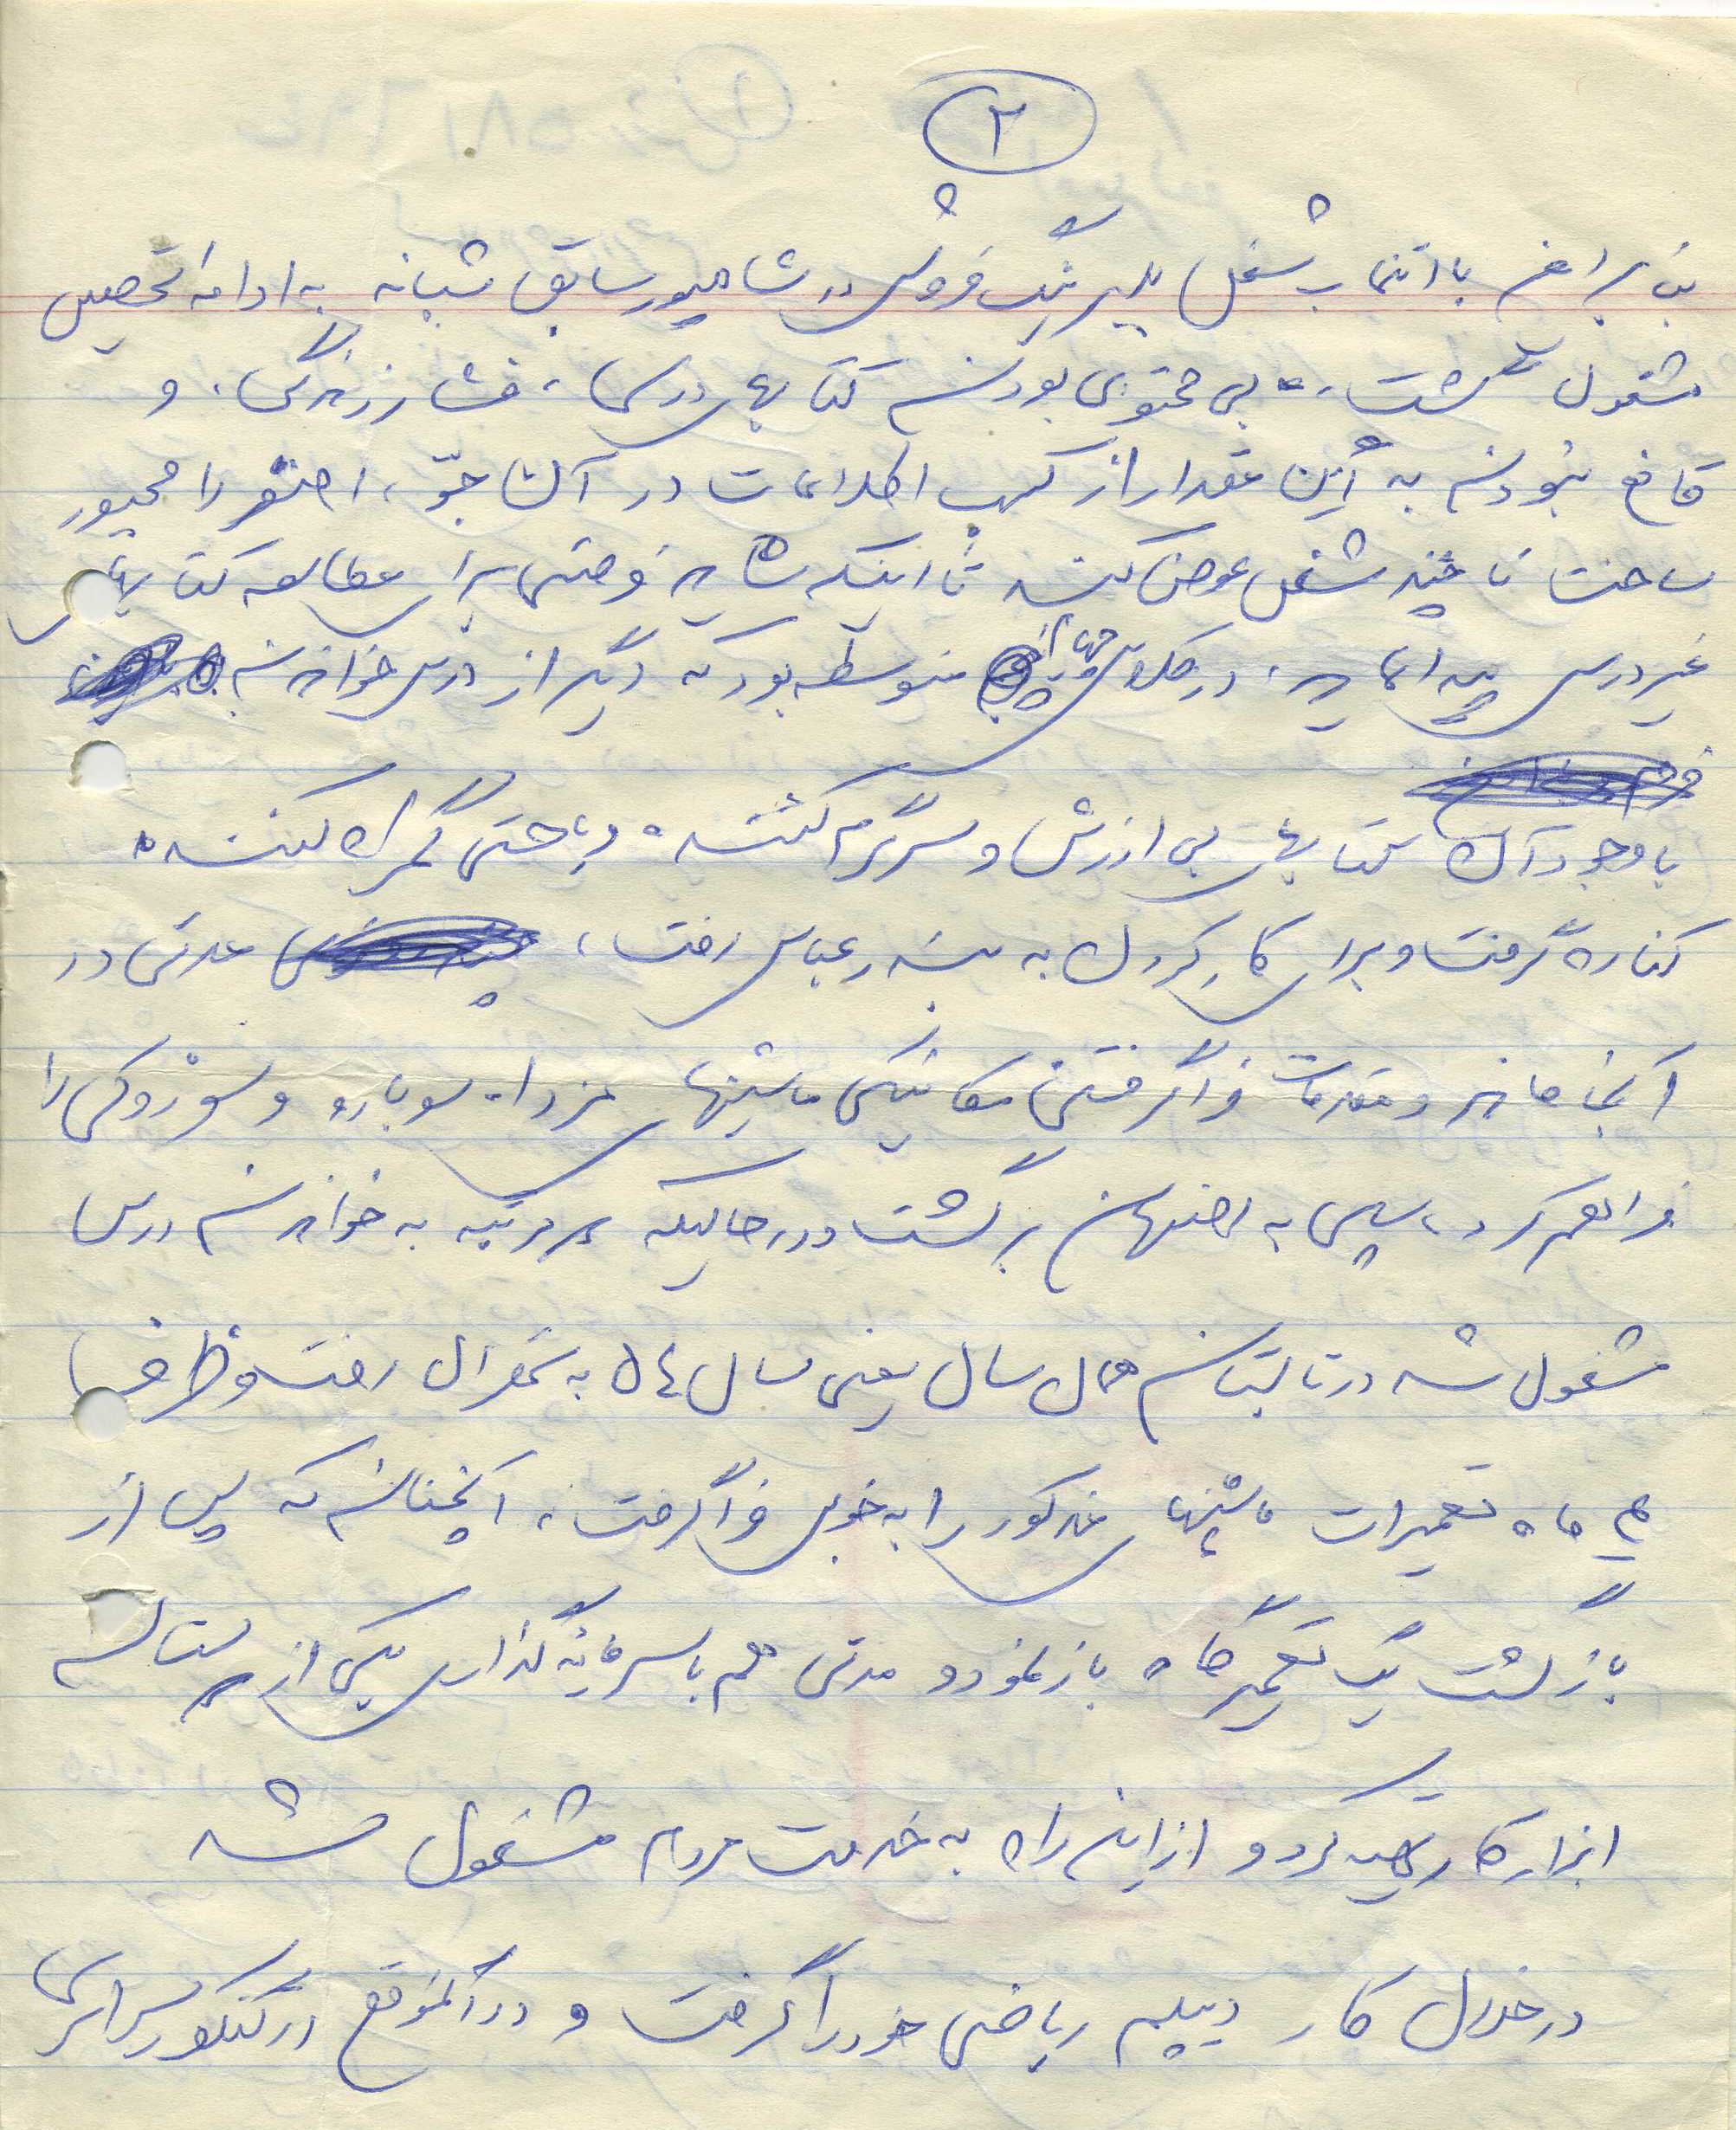 ۲
بنابراین با انتخاب شغل بلبرینگ فروشی در شاهپور سابق شبانه به ادامه تحصیل
مشغول گشت، بی محتوی بودن کتابهای درسی، فشار زندگی، و
قانع نبودن به این مقدار از کسب اطلاعات در آن جوّ، را مجبور
ساخت تا چند شغل عوض کند تا اینکه شاید فرصتی برای مطالعه کتابهای
غیر درسی پیدا نماید، در کلاس متوسطه بود که دیگر از درس خواندن
با وجود آن کتابهای بی ارزش و سرگرم کننده و یا حتی گمراه کننده
کناره گرفت و برای کار کردن به بندر عباس رفت، مدتی در
آنجا ماند و مقدمات فراگرفتن مکانیکی ماشینهای مزدا، سوبارو و سوزوکی را
فراهم کرد، سپس به اصفهان برگشت و در حالیکه به خواندن درس
مشغول شد در تابستان همان سال یعنی سال ۵۴ به تهران رفت و ظرف
ماه تعمیرات ماشینهای مذکور را به خوبی فراگرفت، آنچنانکه پس از
بازگشت یک تعمیرگاه باز نمود و مدتی هم با سرمایه گذاری یکی از
ابزار کار تهیه کرد و از این راه به خدمت مردم مشغول شد
در خلال کار دیپلم ریاضی خود را گرفت و در آنموقع در کنکور سراسری